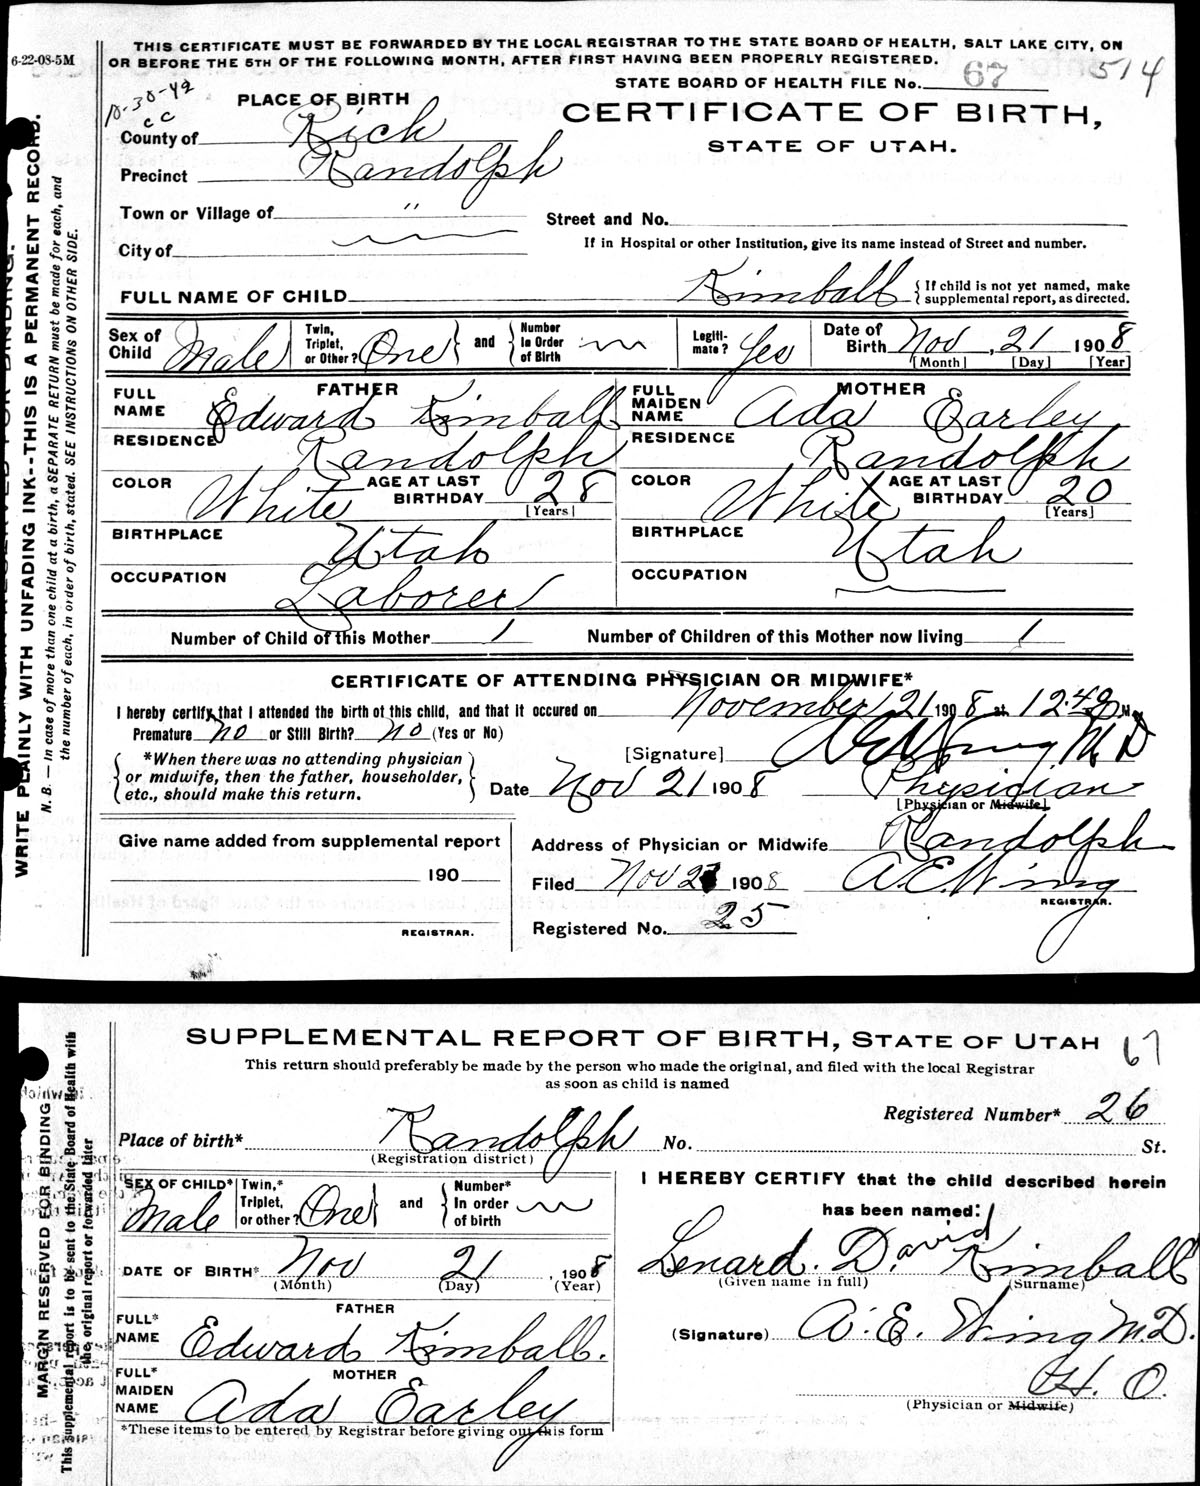 THIS CERTIFICATE MUST BE FORWARDED BY THE LOCAL REGISTRAR TO THE STATE BOARD OF HEALTH, SALT LAKE CITY, ON
OR BEFORE THE 5TH OF THE FOLLOWING MONTH, AFTER FIRST HAVING BEEN PROPERLY REGISTERED.
6-22-08-5M
STATE BOARD OF HEALTH FILE No. 67 514
10-30-42
CC
PLACE OF BIRTH
CERTIFICATE OF BIRTH,
STATE OF UTAH.
County of Rich
Precinct Randolph
Town or Village of "
Street and No.
City of
If in Hospital or other Institution, give its name instead of Street and number.
FULL NAME OF CHILD Kimball { If child is not yet named, make supplemental report, as directed.
Sex of Child Male Twin, Triplet, or Other? One } and { Number In Order of Birth Legiti-mate? Yes Date of Birth Nov, 21 1908
[Month] [Day] [Year]
FATHER MOTHER
FULL NAME Edward Kimball FULL MAIDEN NAME Ada Earley
RESIDENCE Randolph RESIDENCE Randolph
COLOR White AGE AT LAST BIRTHDAY 28 [Years] COLOR White AGE AT LAST BIRTHDAY 20 [Years]
BIRTHPLACE Utah BIRTHPLACE Utah
OCCUPATION Laborer OCCUPATION
Number of Child of this Mother 1 Number of Children of this Mother now living 1
CERTIFICATE OF ATTENDING PHYSICIAN OR MIDWIFE*
I hereby certify that I attended the birth of this child, and that it occured on November 21 1908 at 12.40 M.
Premature? no or Still Birth? no (Yes or No)
[Signature] A E Wing M D
*When there was no attending physician or midwife, then the father, householder, etc., should make this return.
Date Nov 21 1908 Physician
[Physician or Midwife]
Give name added from supplemental report
190
REGISTRAR.
Address of Physician or Midwife Randolph
Filed Nov 2 1908 A. E. Wing
REGISTRAR.
Registered No. 25
WRITE PLAINLY WITH UNFADING INK--THIS IS A PERMANENT RECORD.
N. B. — In case of more than one child at a birth, a SEPARATE RETURN must be made for each, and
the number of each, in order of birth, stated. SEE INSTRUCTIONS ON OTHER SIDE.
SUPPLEMENTAL REPORT OF BIRTH, STATE OF UTAH 67
This return should preferably be made by the person who made the original, and filed with the local Registrar
as soon as child is named
Registered Number* 26
Place of birth* Randolph No. St.
(Registration district)
SEX OF CHILD* Male Twin,* Triplet, or other? One } and { Number* In order of birth
DATE OF BIRTH* Nov 21, 1908
(Month) (Day) (Year)
FATHER
FULL* NAME Edward Kimball.
MOTHER
FULL* MAIDEN NAME Ada Earley
*These items to be entered by Registrar before giving out this form
I HEREBY CERTIFY that the child described herein
has been named:
Lenard. David Kimball
(Given name in full) (Surname)
(Signature) A. E. Wing M.D.
H. O.
(Physician or Midwife)
MARGIN RESERVED FOR BINDING
This supplemental report is to be sent to the State Board of Health with
the original report or forwarded later